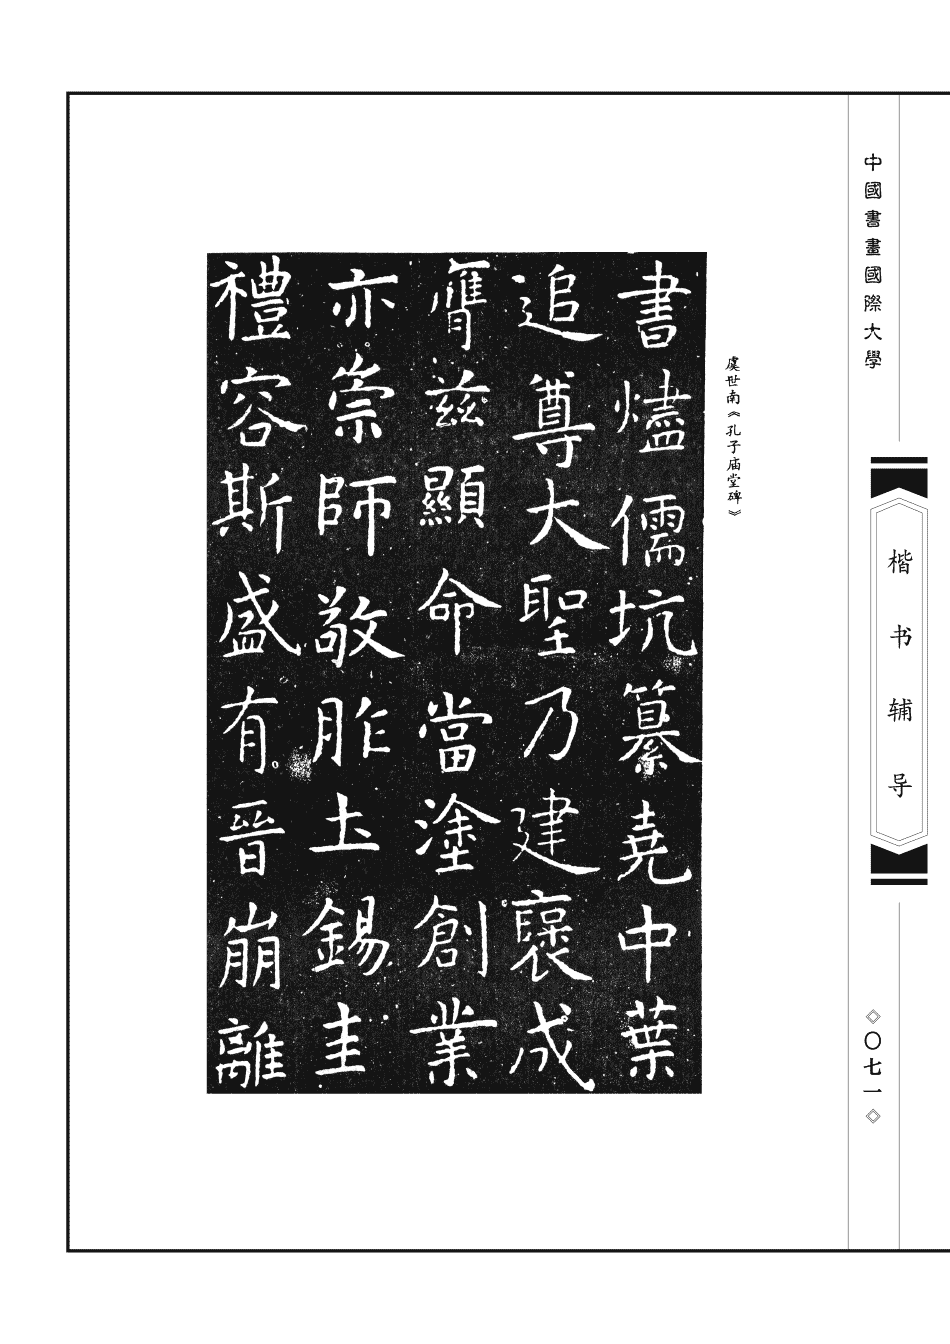 中國書畫國際大學
楷书辅导
◇〇七一◇
虞世南《孔子庙堂碑》
書燼儒坑纂堯中葉
追尊大聖乃建襃成
膺茲顯命當塗創業
亦崇師敬胙圡錫圭
禮容斯盛有晉崩離